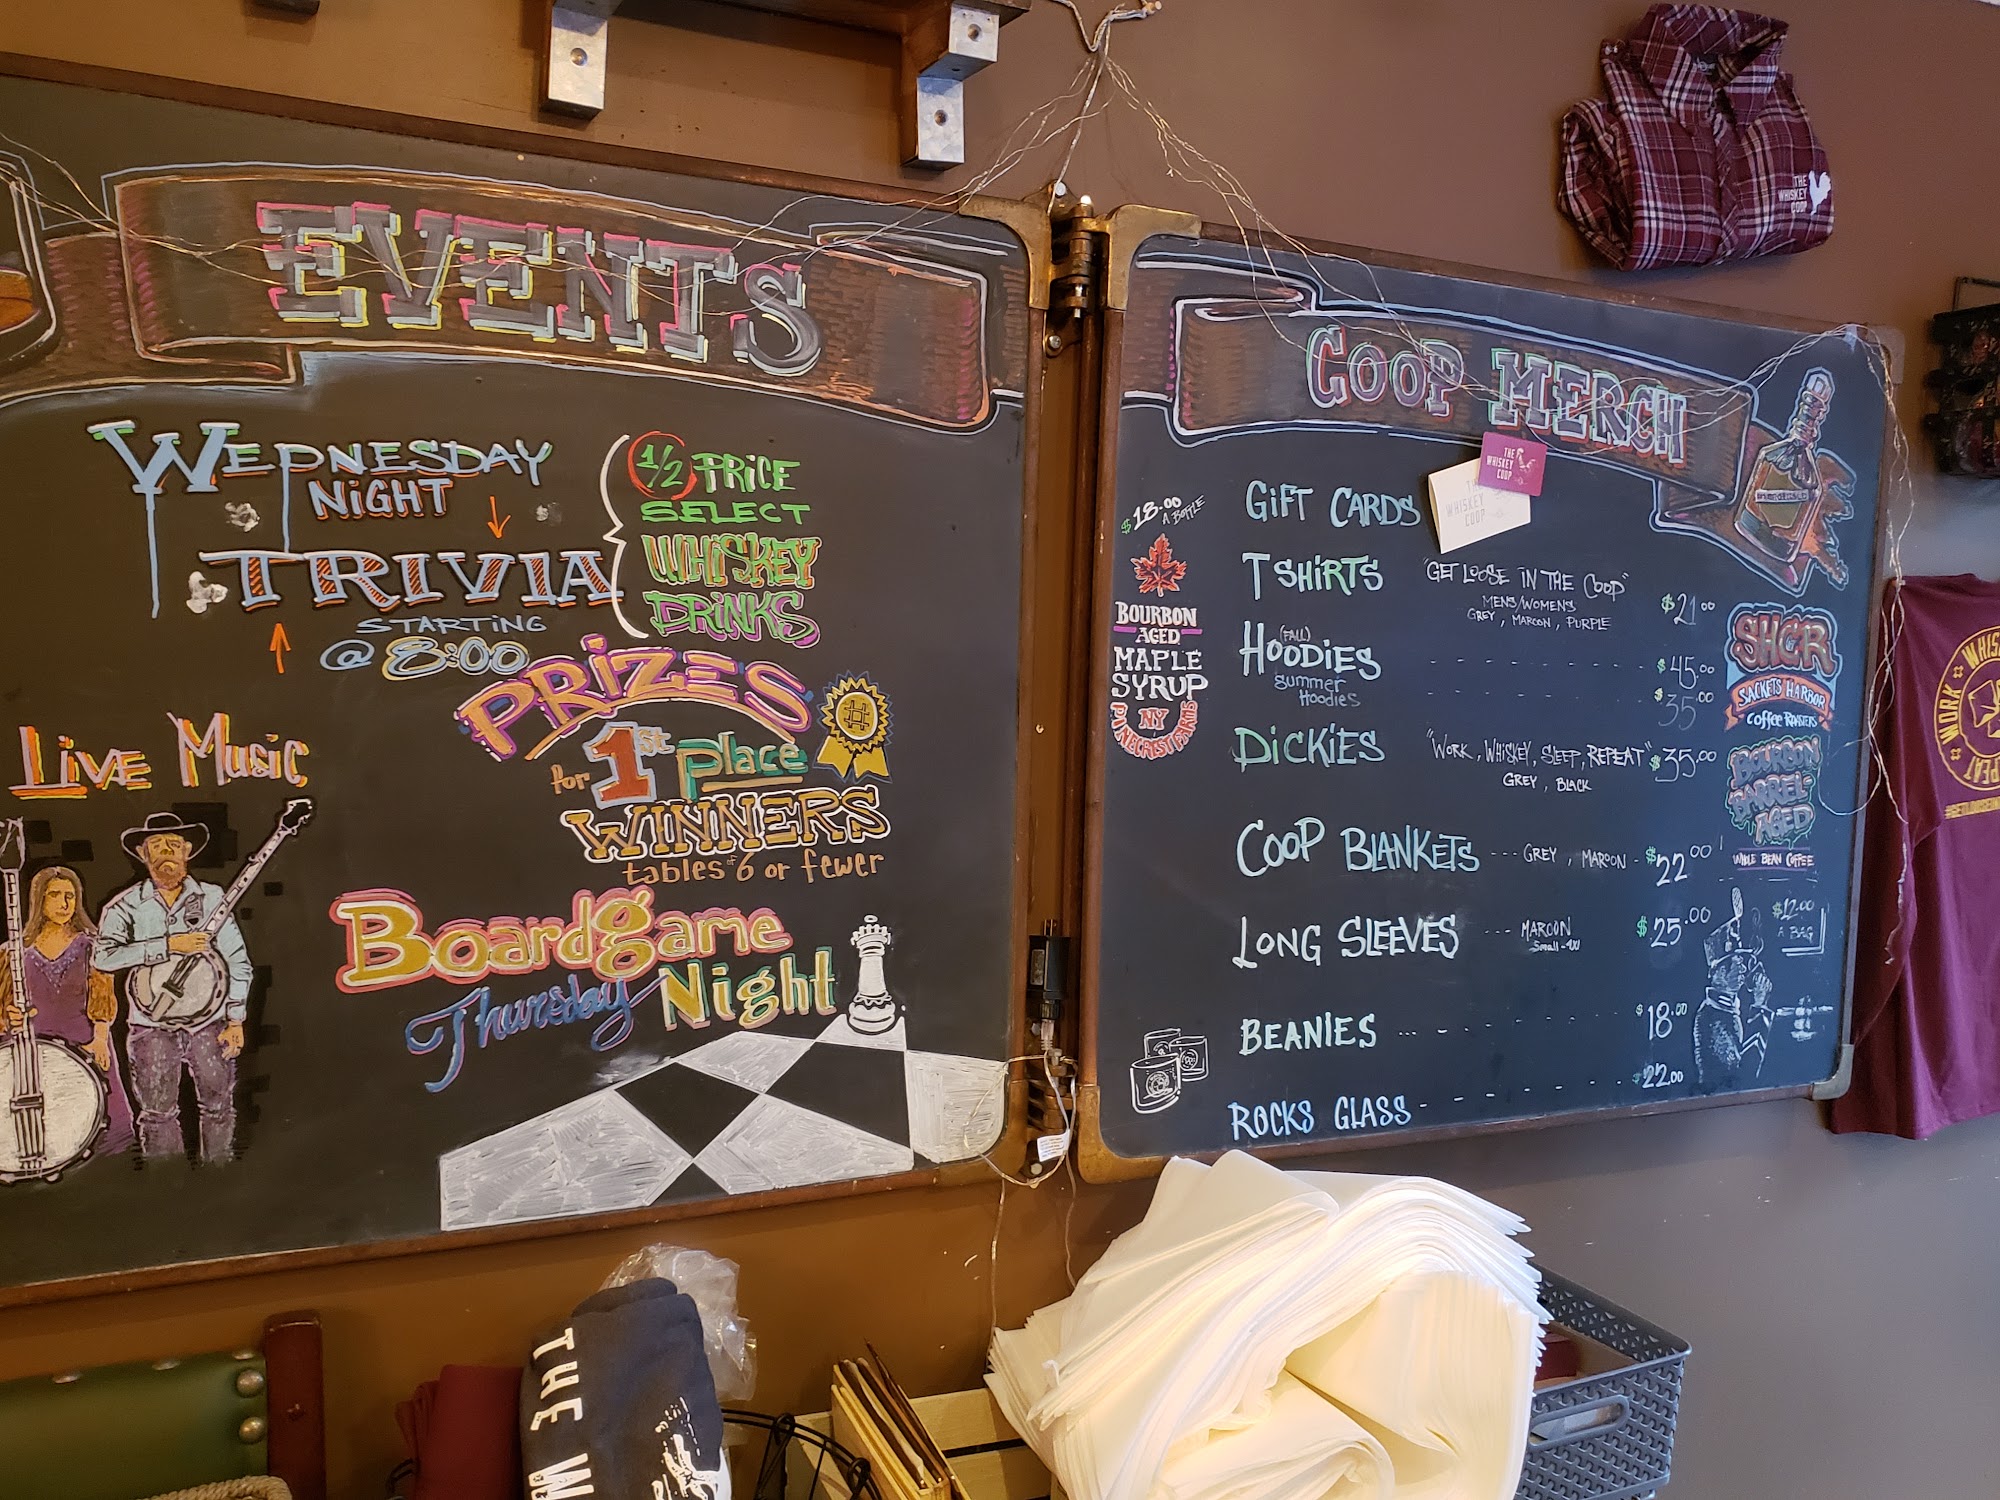 EVENTS
WEDNESDAY
NIGHT
TRIVIA
STARTING
@ 8:00
1/2 PRICE
SELECT
WHISKEY
DRINKS
PRIZES
for 1st Place
WINNERS
tables of 6 or fewer
LIVE MUSIC
Boardgame
Thursday Night
COOP MERCH
$18.00
A BOTTLE
BOURBON
AGED
MAPLE
SYRUP
NY
GIFT CARDS
THE
WHISKEY
COOP
THE
WHISKEY
COOP
T SHIRTS "GET LOOSE IN THE COOP" $21.00
MENS/WOMENS
GREY, MAROON, PURPLE
(FALL)
HOODIES $45.00
Summer
Hoodies $35.00
DICKIES "WORK, WHISKEY, SLEEP, REPEAT" $35.00
GREY, BLACK
COOP BLANKETS --- GREY, MAROON - $22.00
LONG SLEEVES --- MAROON $25.00
BEANIES $18.00
ROCKS GLASS $22.00
SHCR
SACKETS HARBOR
Coffee ROASTERS
BOURBON
BARREL-
AGED
WHOLE BEAN COFFEE
$12.00
A BAG
THE
WHISKEY
COOP
WORK
THE W